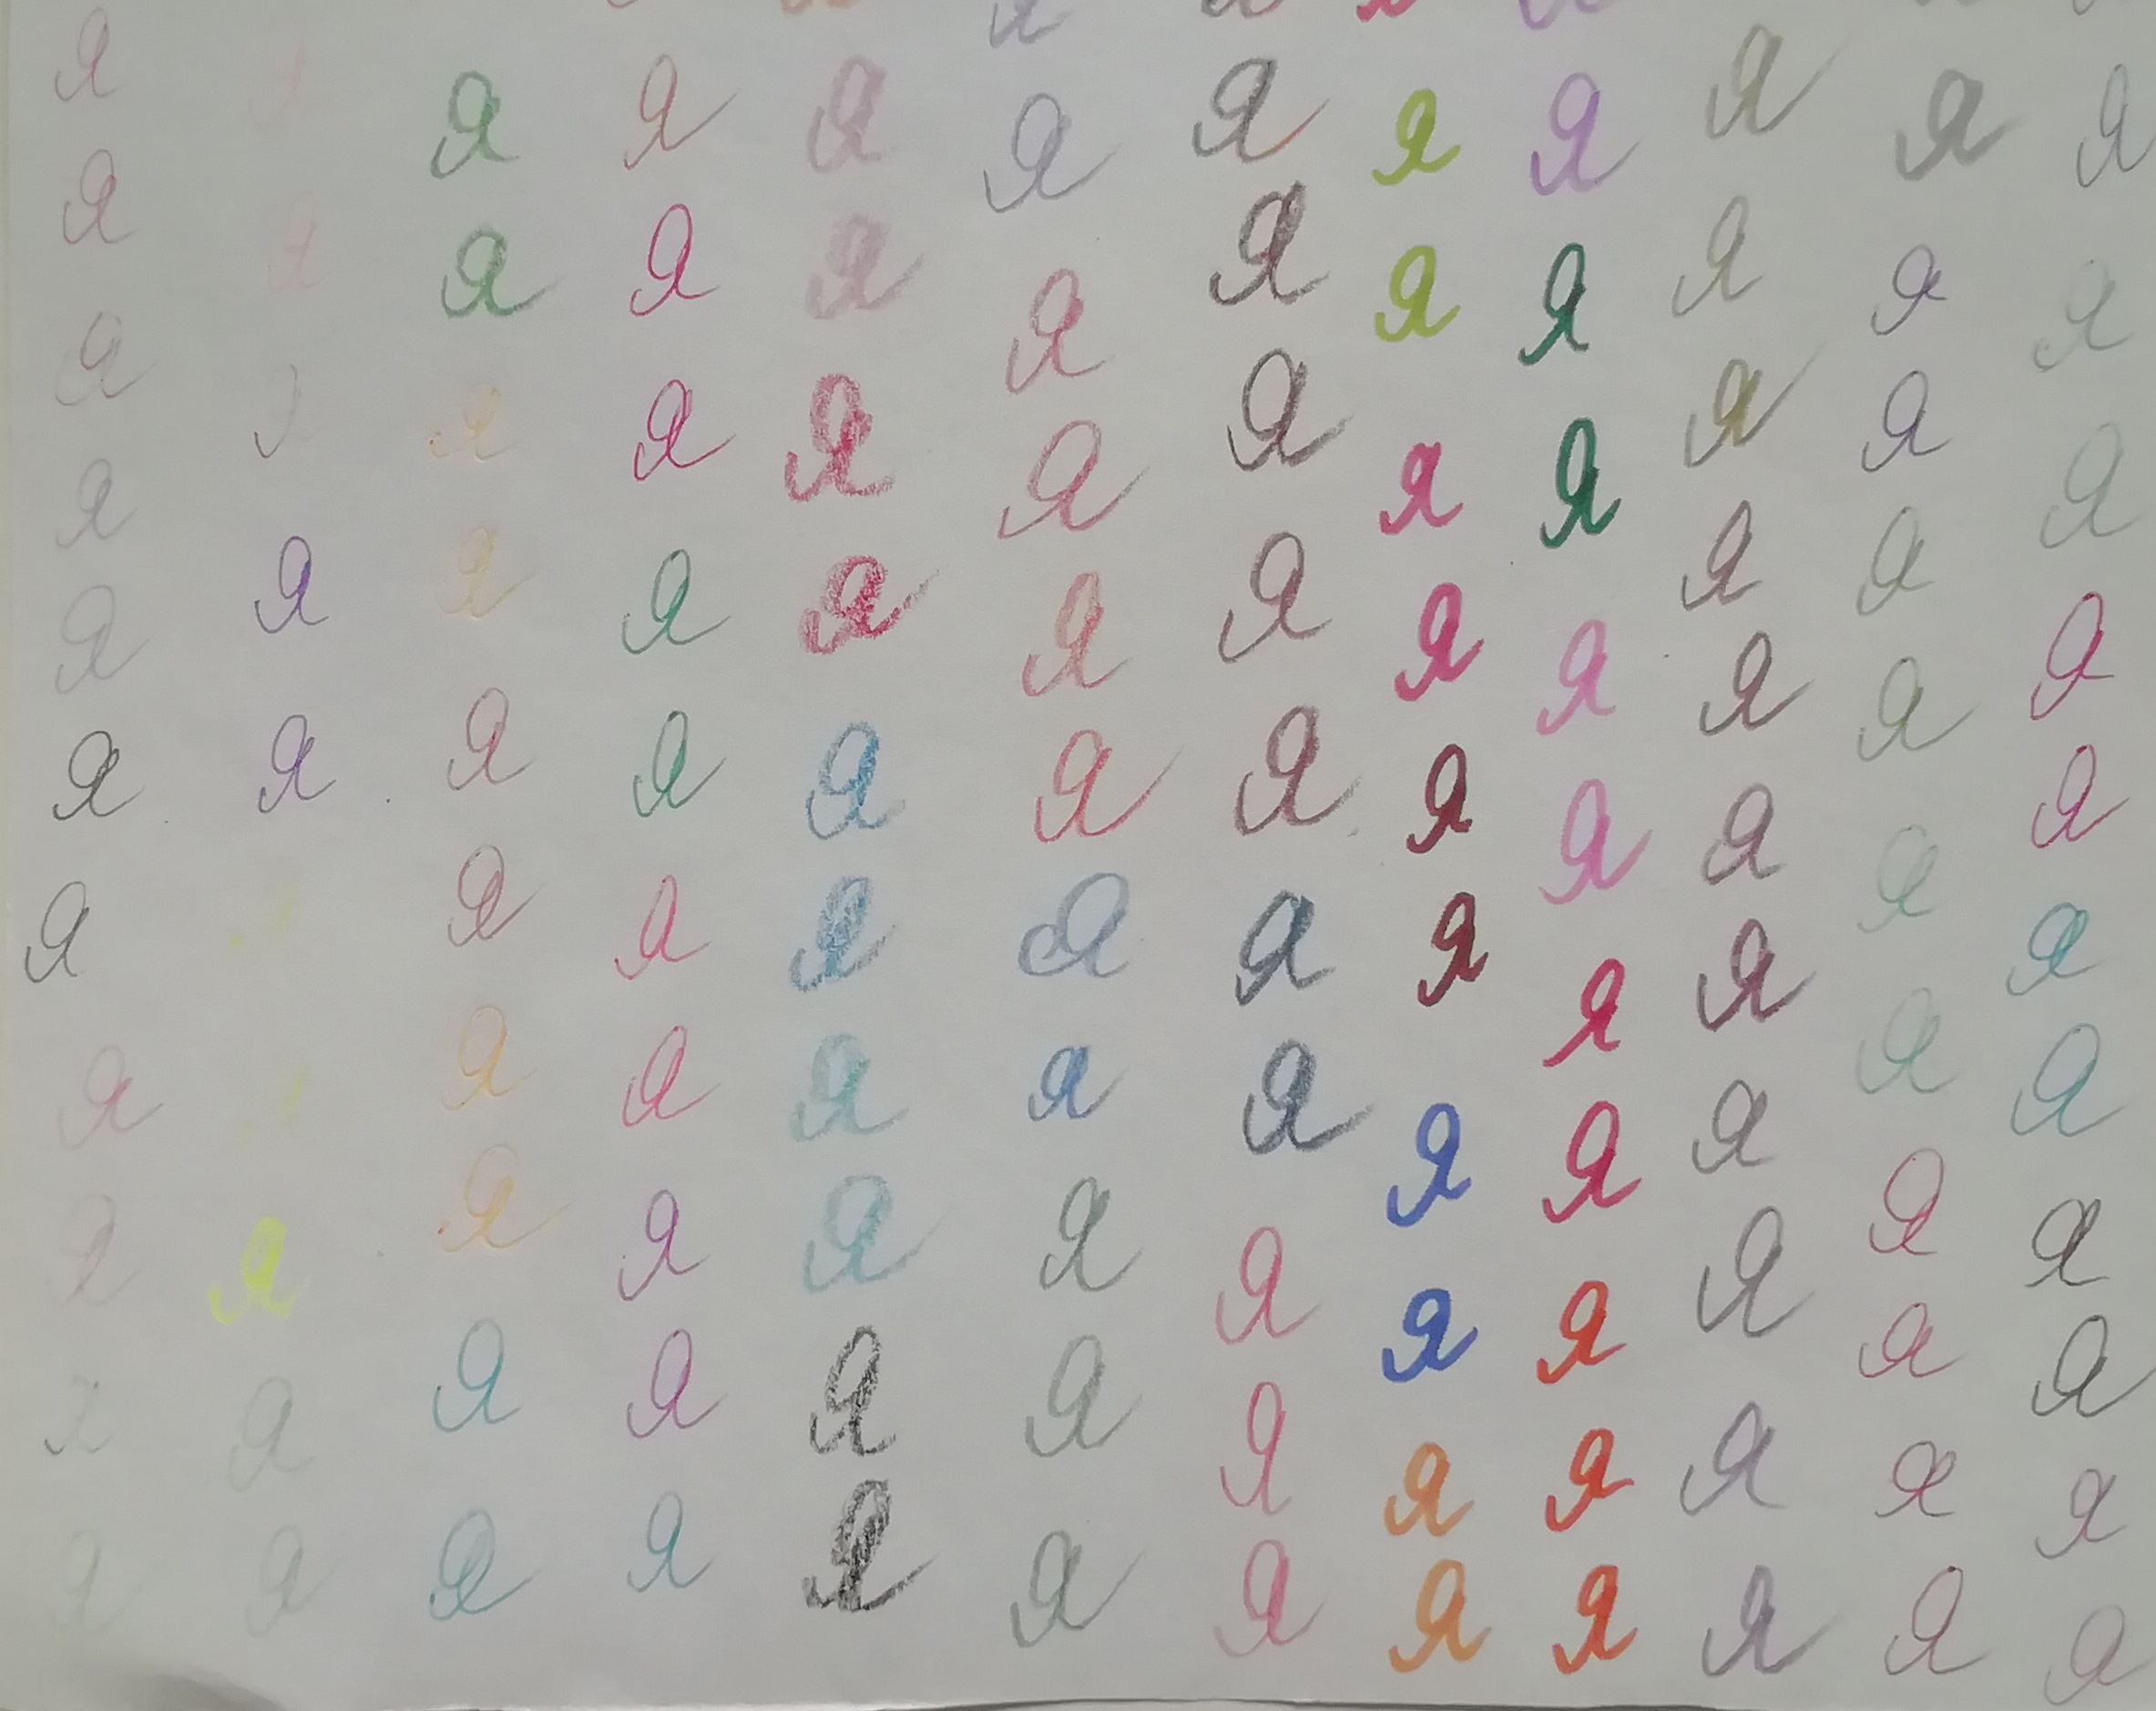 я я я я я я я я я я я я
я я я я я я я я я я я я
я я я я я я я я я я я я
я я я я я я я я я я я я
я я я я я я я я я я я я
я я я я я я я я я я я я
я я я я я я я я я я я я
я я я я я я я я я я я я
я я я я я я я я я я я я
я я я я я я я я я я я я
я я я я